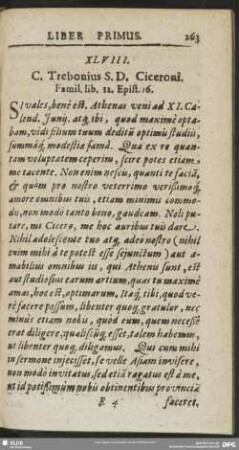 LIBER PRIMUS. 263
XLVIII.
C. Trebonius S. D. Ciceroni.
Famil. lib. 12. Epist. 16.
SI vales, benè est. Athenas veni ad XI. Ca-
lend. Junij. atq; ibi, quod maximè opta-
bam, vidi filium tuum deditũ optimis studiis,
summâq; modestiæ famâ. Qua ex re quan-
tam voluptatem ceperim, scire potes etiam
me tacente. Non enim nescis, quanti te faciã,
& quàm pro nostro veterrimo verissimoq;
amore omnibus tuis, etiam minimis commo-
dis, non modò tanto bono, gaudeam. Noli pu-
tare, mi Cicero, me hoc auribus tuis dare.
Nihil adolescente tuo atq; adeo nostro (nihil
enim mihi à te potest esse sejunctum) aut a-
mabilius omnibus iis, qui Athenis sunt, est
aut studiosius earum artium, quas tu maximè
amas, hoc est, optimarum. Itaq; tibi, quod ve-
rè facere possum, libenter quoq; gratulor, nec
minùs etiam nobis, quòd eum, quem necesse
erat diligere, qualiscunq; esset, talem habemus,
ut libenter quoq; diligamus. Qui cum mihi
in sermone injecisset, se velle Asiam invisere,
non modò invitatus, sed etiã rogatus est à me,
ut id potissimùm nobis obtinentibus provinciã
R 4 faceret,
SLUB